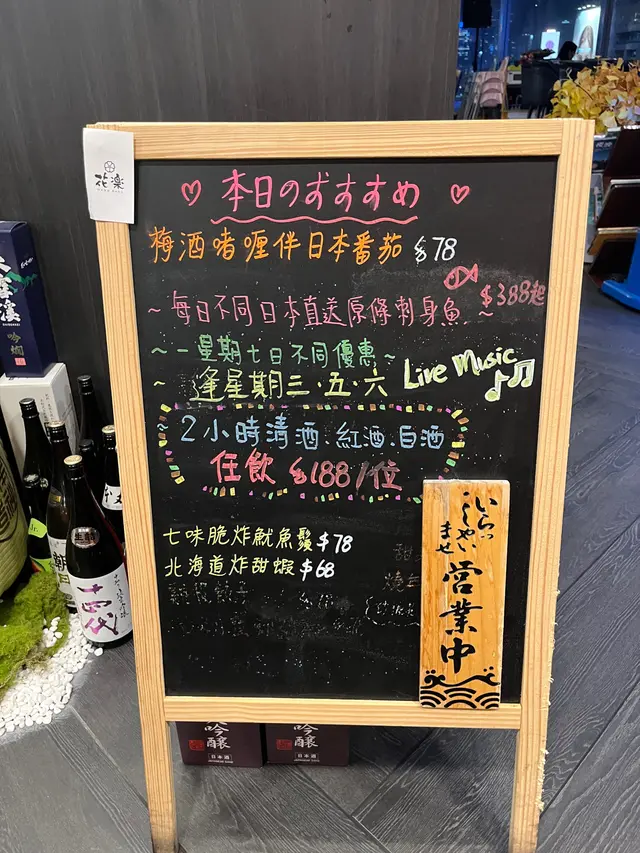 花楽
♡ 本日のおすすめ ♡
梅酒啫喱伴日本番茄 $78
~每日不同日本直送原條刺身魚~ $388起
~一星期七日不同優惠~
~逢星期三.五.六 Live Music
~2小時清酒.紅酒.白酒
任飲 $188/位
七味脆炸魷魚鬚 $78
北海道炸甜蝦 $68
いらっ
しゃい
ませ
営業中
吟醸
日本酒
日本酒
十四代